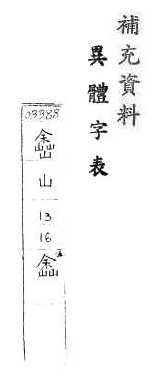 補充資料
異體字表
03388
山
13
16
嵞